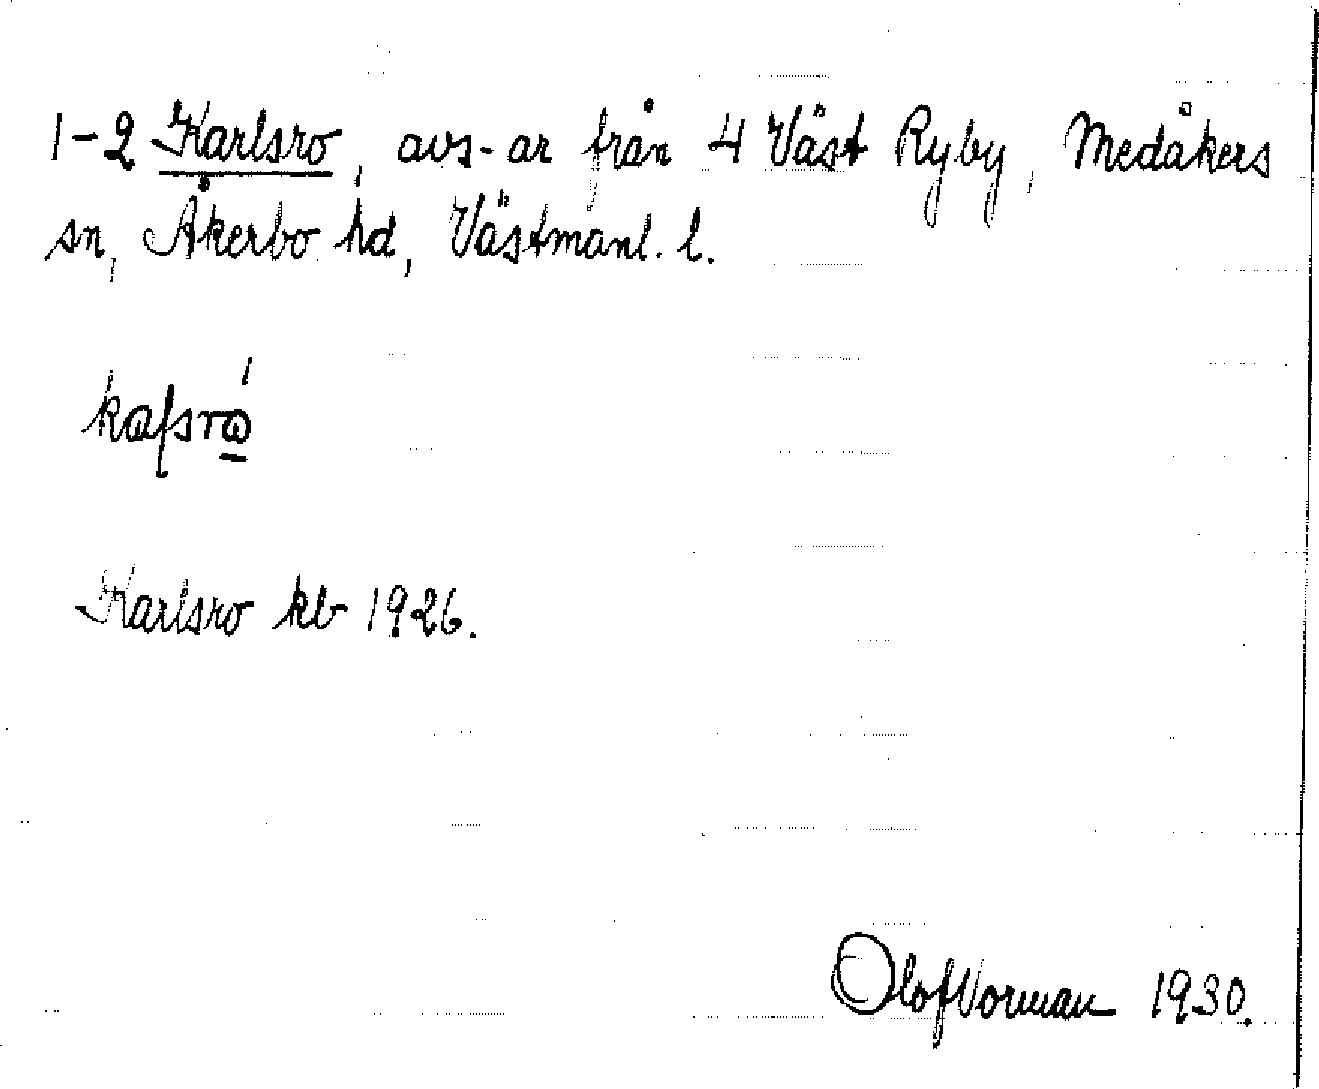 1-2 Karlsro, avs-ar från 4 Väst Ryby, Medåkers
sn, Åkerbo hd, Västmanl. l.
Karlsro kb 1926.
Olof Norman 1930.